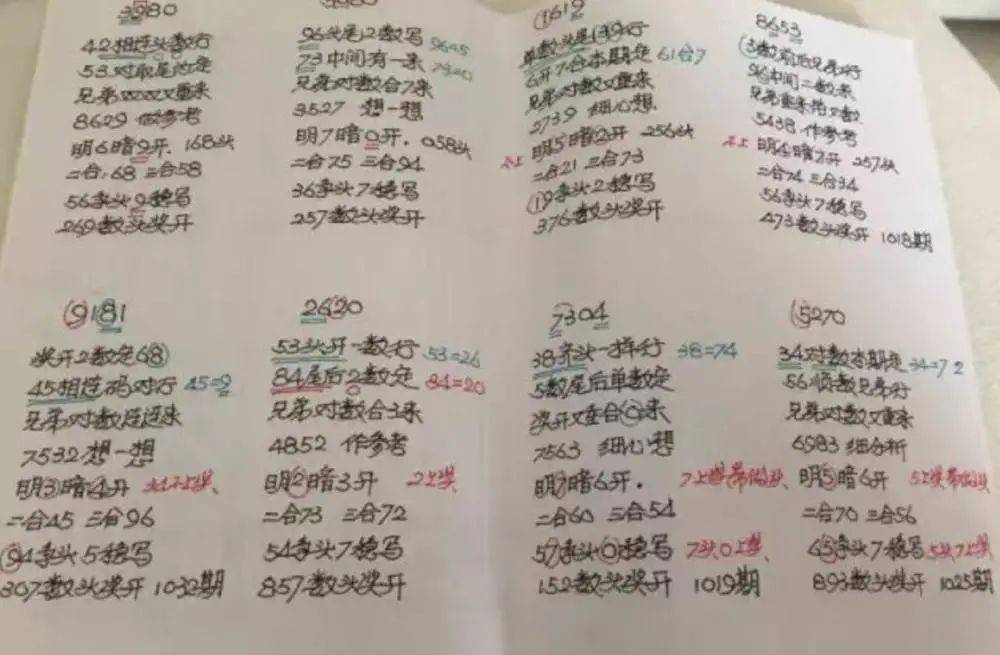 3980
42相连头数行
53对取尾内定
兄弟双双又重来
8629 做参考
明6暗9开. 168头
二合:68 三合58
56李头9稳写
269数头奖开
96头尾12数写 9645
73中间有一来 7320
兄弟对数合7来
3527 想一想
明7暗0开. 058头
二合75 三合94
36李头7稳写
257数头奖开
1619
单数头尾(39)行
6开7合本期定 61合7
兄弟对数又重来
2739 细心想.
明5暗2开 256头
二合21 三合73
19李头2稳写
376数头奖开
8653
3数前后兄弟行
96中间二数来
兄弟重来抬数
5438 作参考
不上 明6暗7开 257头
二合74 三合34
56李头7稳写
473数头奖开 1018期
9181
奖开2数定68
45相连码对行 45=9
兄弟对数连连来
7532想一想
明3暗4开
二合45 三合96
94李头5稳写
307数头奖开 1032期
2620
53头开一数行 53=26
84尾后2数定 84=20
兄弟对数合3来
4852 作参考
明2暗3开 2上奖
二合73 三合72
54李头7稳写
857数头奖开
7304
38齐头一样行 38=74
5数尾后单数定
奖开又查合0来
7563 细心想
明7暗6开. 7上奖带做头
二合60 三合54
57李头0稳写 7头0上奖
152数头奖开 1019期
5270
34对数本期定 34=72
56顺数兄弟行
兄弟对数又重来
6983 细分析
明5暗6开 5上奖带做头
二合70 三合56
45李头7稳写 5头7上奖
893数头奖开 1025期